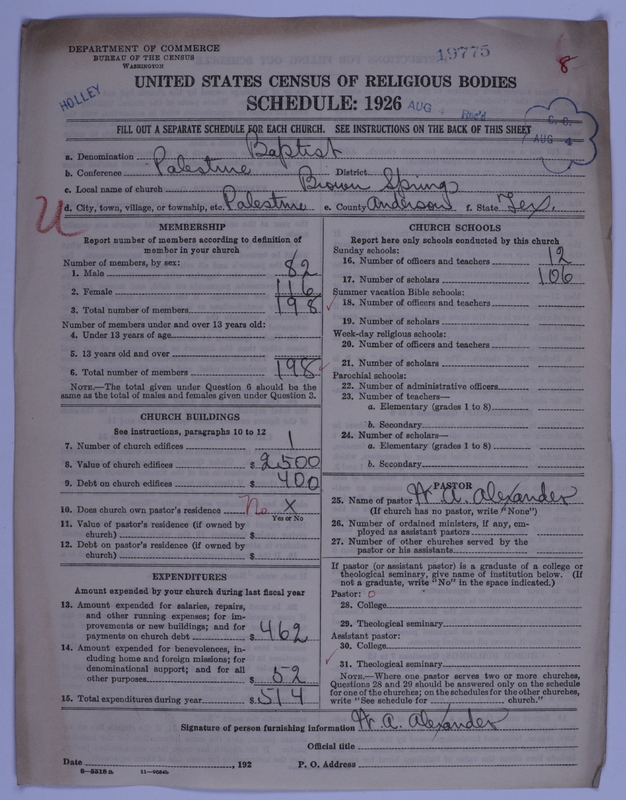 DEPARTMENT OF COMMERCE
BUREAU OF THE CENSUS
WASHINGTON
19775
8
UNITED STATES CENSUS OF RELIGIOUS BODIES
SCHEDULE: 1926
HOLLEY
AUG 4 Rec'd
C. C.
AUG 4
FILL OUT A SEPARATE SCHEDULE FOR EACH CHURCH. SEE INSTRUCTIONS ON THE BACK OF THIS SHEET
a. Denomination Baptist
b. Conference Palestine District
c. Local name of church Brown Springs
d. City, town, village, or township, etc. Palestine e. County Anderson f. State Tex.
U
MEMBERSHIP
Report number of members according to definition of
member in your church
Number of members, by sex:
1. Male 82
2. Female 116
3. Total number of members 198
Number of members under and over 13 years old:
4. Under 13 years of age
5. 13 years old and over
6. Total number of members 198
NOTE.—The total given under Question 6 should be the
same as the total of males and females given under Question 3.
CHURCH BUILDINGS
See instructions, paragraphs 10 to 12
7. Number of church edifices 1
8. Value of church edifices $ 2500
9. Debt on church edifices $ 400
10. Does church own pastor's residence No X
Yes or No
11. Value of pastor's residence (if owned by
church) $
12. Debt on pastor's residence (if owned by
church) $
EXPENDITURES
Amount expended by your church during last fiscal year
13. Amount expended for salaries, repairs,
and other running expenses; for im-
provements or new buildings; and for
payments on church debt $ 462
14. Amount expended for benevolences, in-
cluding home and foreign missions; for
denominational support; and for all
other purposes $ 52
15. Total expenditures during year $ 514
CHURCH SCHOOLS
Report here only schools conducted by this church
Sunday schools:
16. Number of officers and teachers 12
17. Number of scholars 106
Summer vacation Bible schools:
18. Number of officers and teachers
19. Number of scholars
Week-day religious schools:
20. Number of officers and teachers
21. Number of scholars
Parochial schools:
22. Number of administrative officers
23. Number of teachers—
a. Elementary (grades 1 to 8)
b. Secondary
24. Number of scholars—
a. Elementary (grades 1 to 8)
b. Secondary
PASTOR
25. Name of pastor W. A. Alexander
(If church has no pastor, write "None")
26. Number of ordained ministers, if any, em-
ployed as assistant pastors
27. Number of other churches served by the
pastor or his assistants
If pastor (or assistant pastor) is a graduate of a college or
theological seminary, give name of institution below. (If
not a graduate, write "No" in the space indicated.)
Pastor: 0
28. College
29. Theological seminary
Assistant pastor:
30. College
31. Theological seminary
NOTE.—Where one pastor serves two or more churches,
Questions 28 and 29 should be answered only on the schedule
for one of the churches; on the schedules for the other churches,
write "See schedule for church."
Signature of person furnishing information W. A. Alexander
Official title
Date , 192 P. O. Address